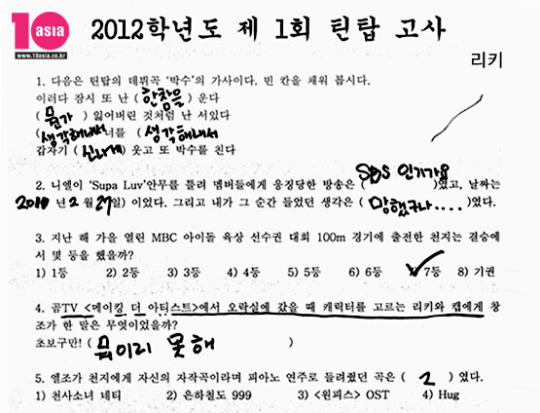 10
asia
www.10asia.co.kr
2012학년도 제 1회 틴탑 고사
리키
1. 다음은 틴탑의 데뷔곡 '박수'의 가사이다. 빈 칸을 채워 봅시다.
이러다 잠시 또 난 ( 한참을 ) 운다
( 뭔가 ) 잃어버린 것처럼 난 서있다
( 생각해내써 너를 ( 생각해내서
갑자기 ( 신나게 ) 웃고 또 박수를 친다
2. 니엘이 'Supa Luv'안무를 틀려 멤버들에게 응징당한 방송은 ( SBS 인기가요 )였고, 날짜는
2010 년 2 월 27일) 이었다. 그리고 내가 그 순간 들었던 생각은 ( 망했구나.... )였다.
3. 지난 해 가을 열린 MBC 아이돌 육상 선수권 대회 100m 경기에 출전한 천지는 결승에
서 몇 등을 했을까?
1) 1등 2) 2등 3) 3등 4) 4등 5) 5등 6) 6등 7) 7등 8) 기권
4. 곰TV <메이킹 더 아티스트>에서 오락실에 갔을 때 캐릭터를 고르는 리키와 캡에게 창
조가 한 말은 무엇이었을까?
초보구만! ( 뭐이리 못해 )
5. 엘조가 천지에게 자신의 자작곡이라며 피아노 연주로 들려줬던 곡은 ( 2 ) 였다.
1) 천사소녀 네티 2) 은하철도 999 3) <원피스> OST 4) Hug